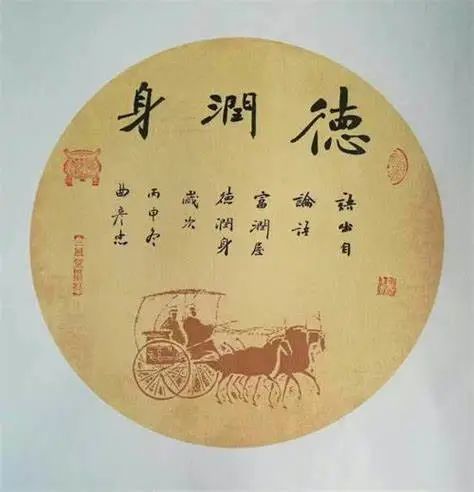 德潤身
語出自
論語
富潤屋
德潤身
歲次
丙申冬
曲彥忠